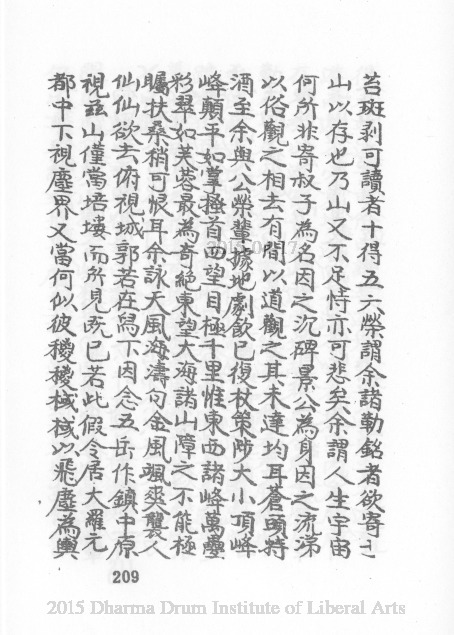 苔斑剥可讀者十得五六榮謂余諸勒銘者欲寄
山以存也乃山又不足恃亦可悲矣余謂人生宇宙
何所非寄叔子為名因之沉碑景公為身因之流涕
以俗觀之相去有間以道觀之其未達均耳蒼頭特
酒至余與公榮輩據地劇飲已復杖策陟大小頂峰
峰顛平如掌極首西望目極千里惟東西諸峰萬疊
彩翠如芙蓉最為奇絕東望大海諸山障之不能極
矚扶桑稍可恨耳余詠天風海濤句金風颯爽襲人
仙仙欲去俯視城郭若在舄下因念五岳作鎮中原
視茲山僅當培塿而所見既已若此假令居大羅元
都中下視塵界又當何似彼穠穠棫棫以飛塵為輿
209
2015 Dharma Drum Institute of Liberal Arts